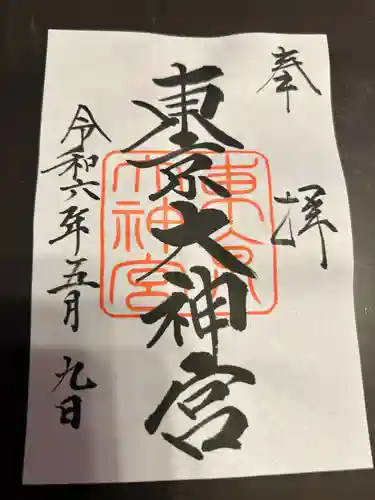 奉拝
東京大神宮
東京大神宮
令和六年五月九日